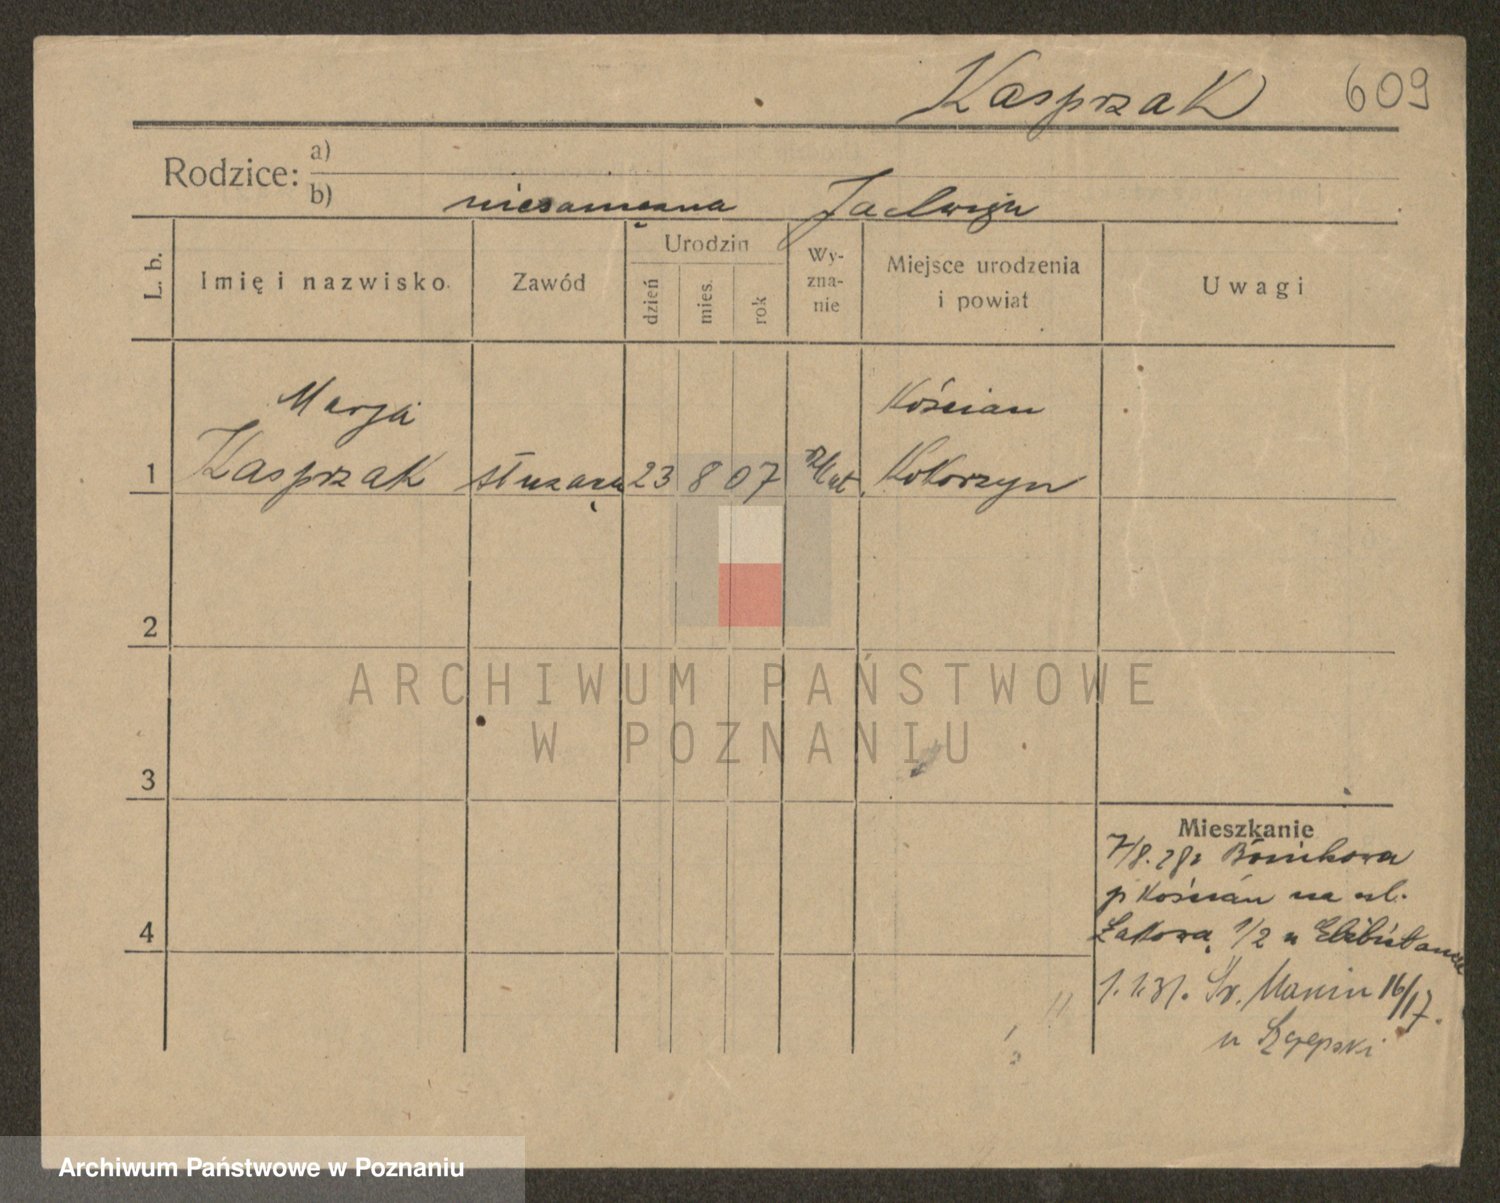 Kasprzak 609
Rodzice: a)
b) niezamężna Jadwiga
L. b.
Imię i nazwisko
Zawód
Urodzin
dzień
mies.
rok
Wy-
zna-
nie
Miejsce urodzenia
i powiat
Uwagi
Marja
Kościan
1 Kasprzak służąca 23 8 07 Kat. Kokorzyn
2
ARCHIWUM PAŃSTWOWE
W POZNANIU
3
Mieszkanie
7/8. 28 Bonikowa
p Kościan na ul.
4
Łąkową 1/2 u
1. 1. 31. Św. Marcin 16/17.
u
Archiwum Państwowe w Poznaniu